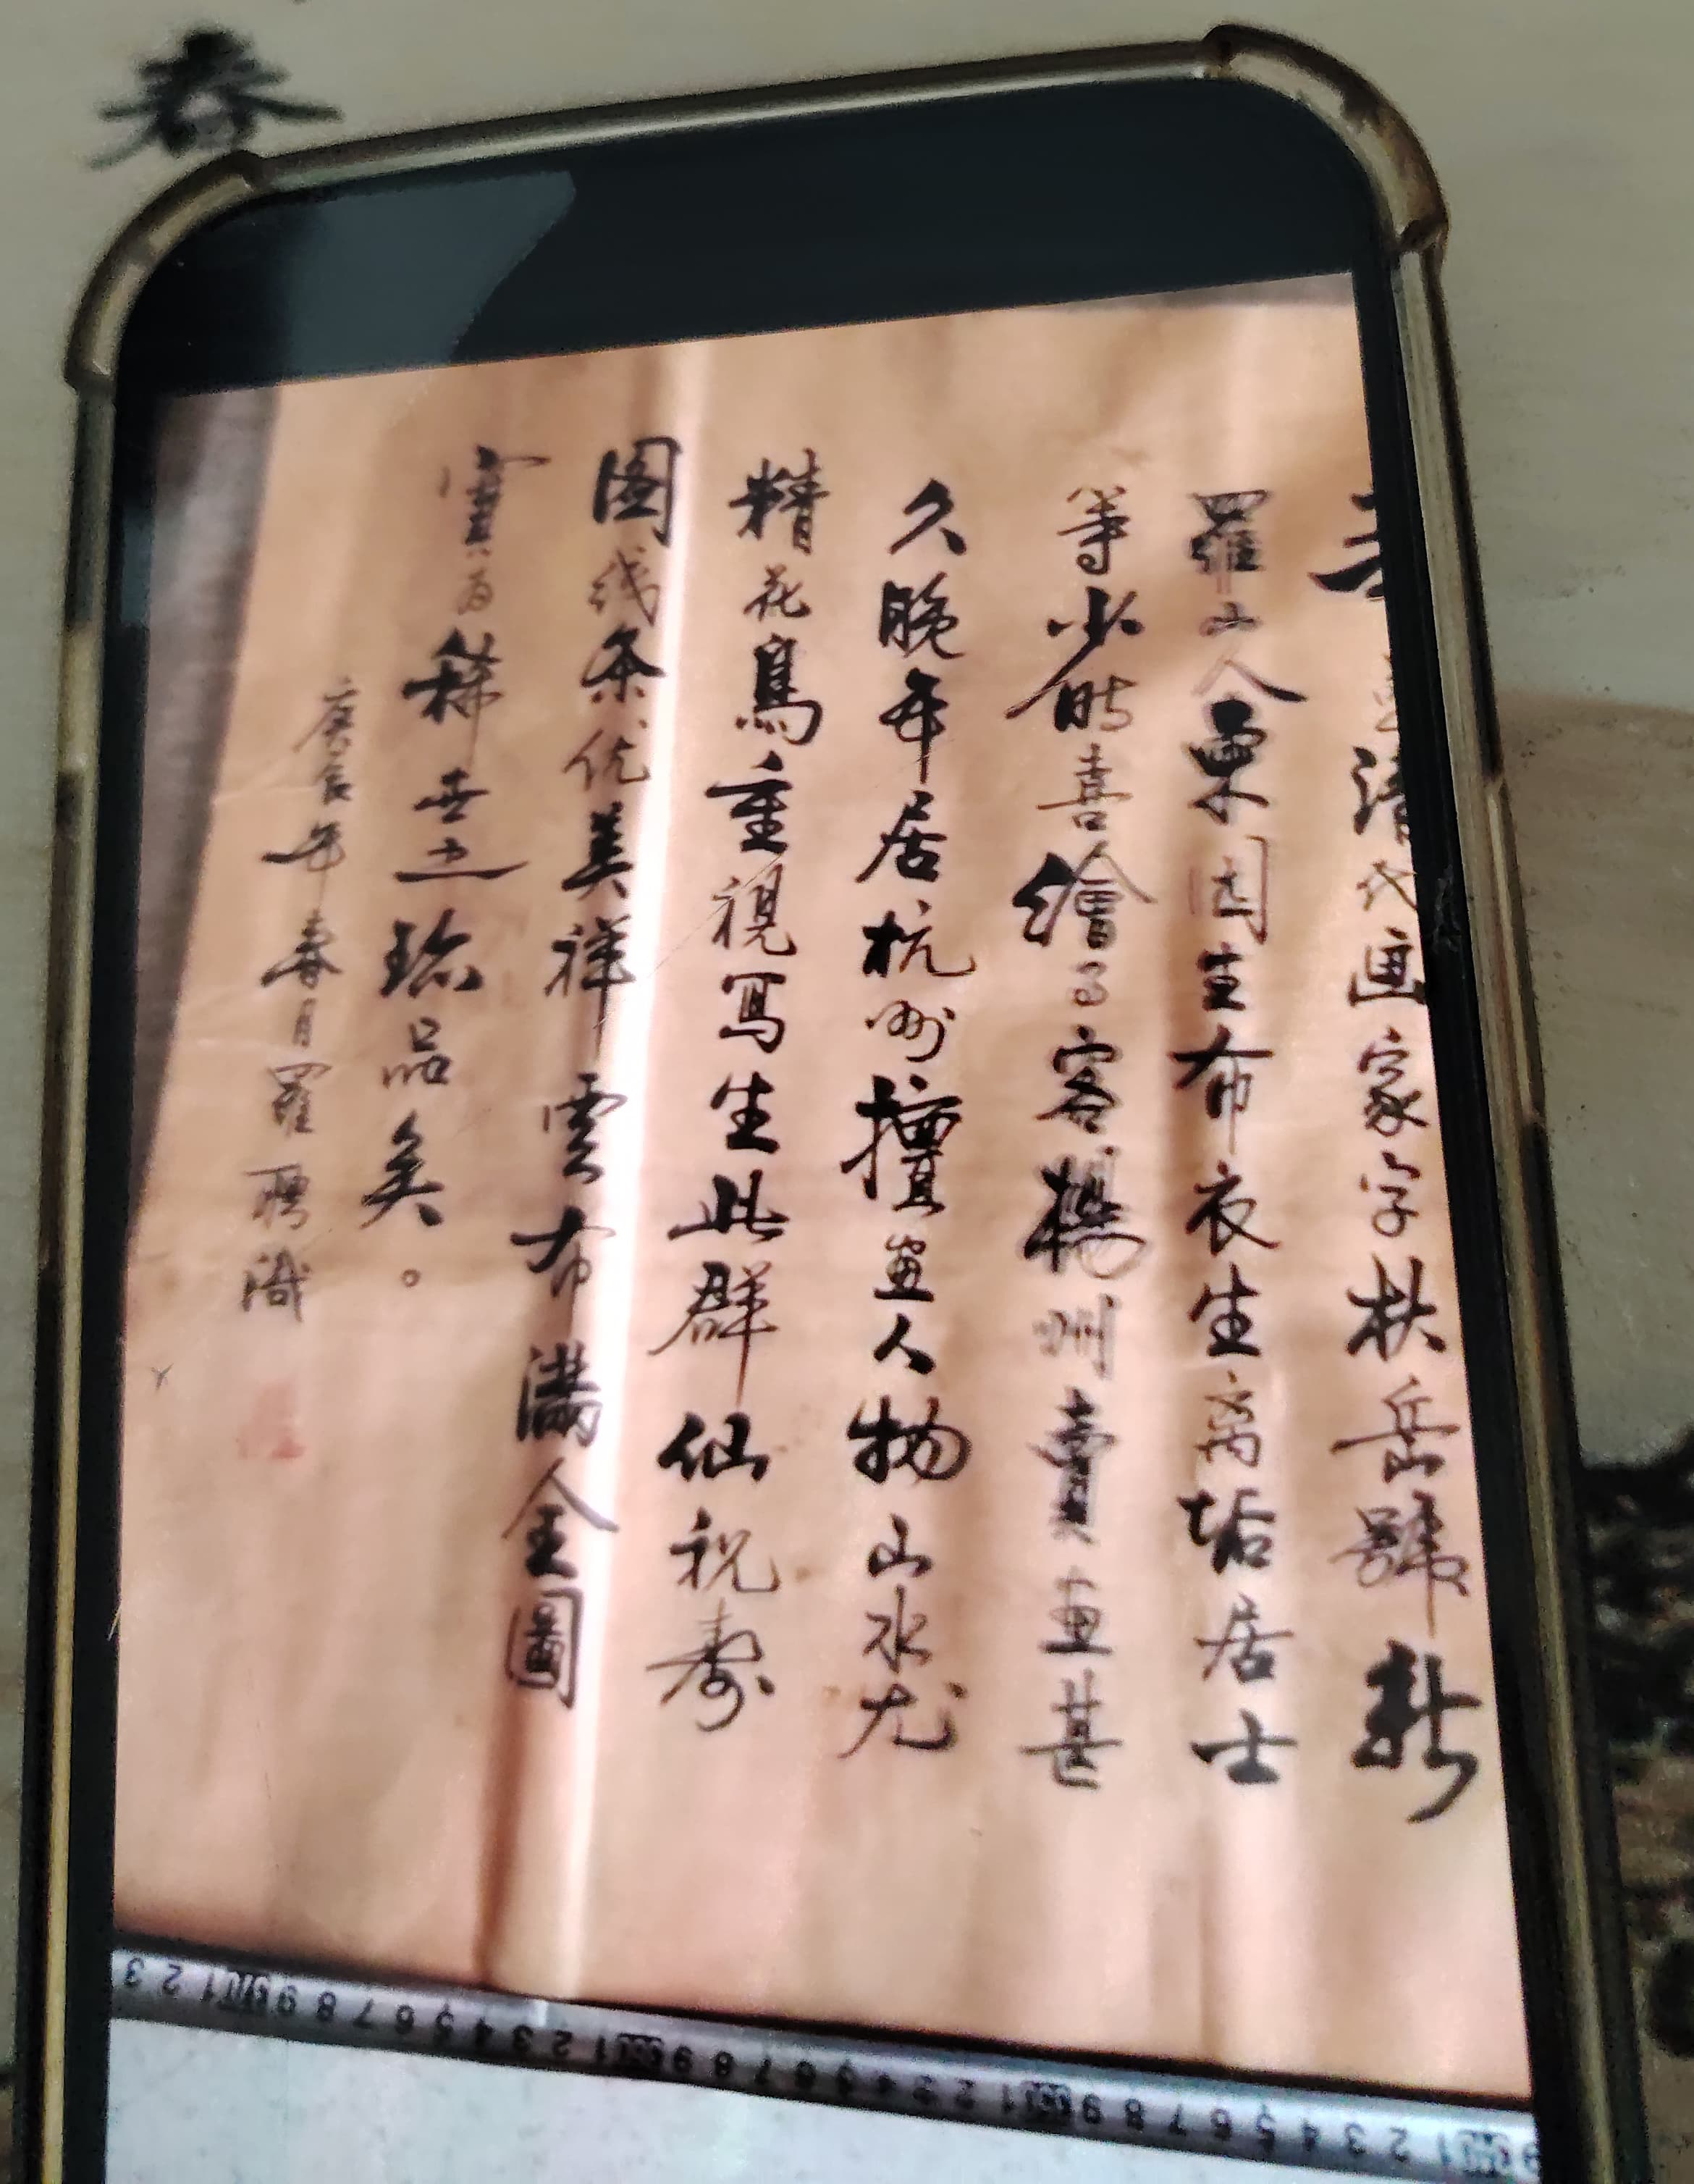 春
清代画家字秋岳號新
羅山人東園生布衣生离垢居士
等少時喜繪已客楊州賣畫甚
久晚年居杭州擅畫人物山水尤
精花鳥重視寫生此群仙祝寿
图线条优美祥雲布满全圖
實为稀世之珍品矣。
年春月羅聘識